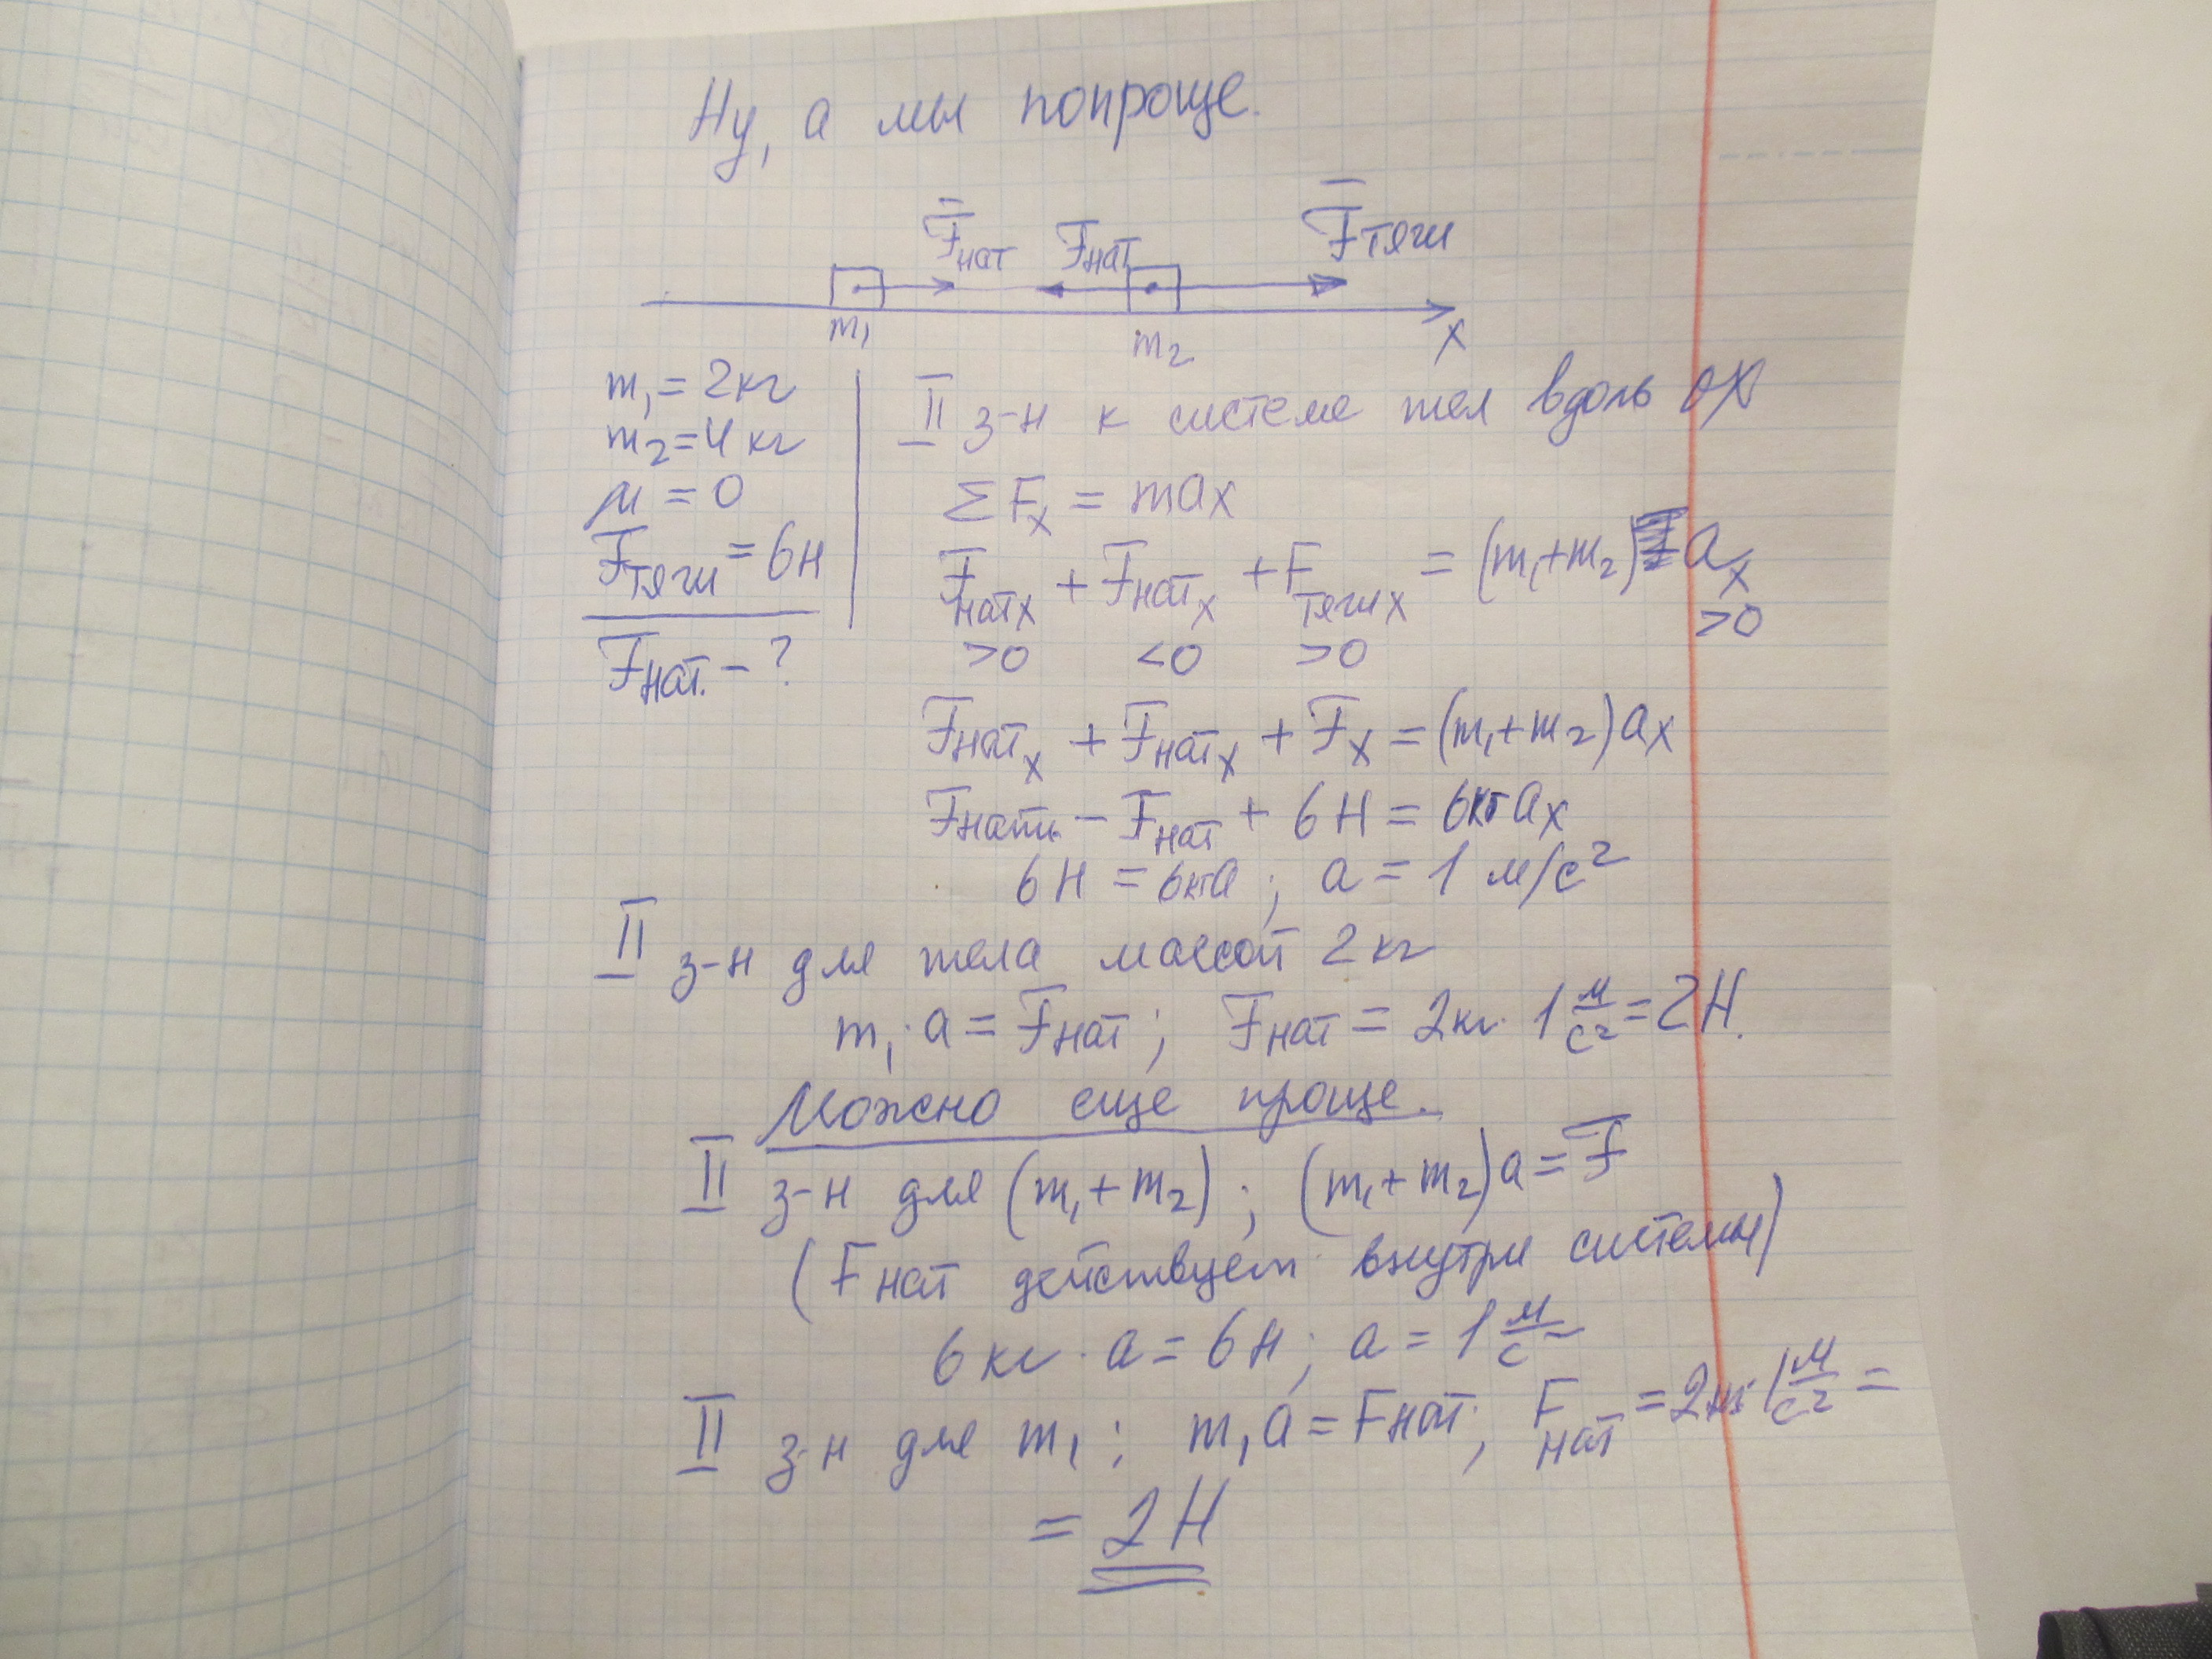 Ну, а мы попроще.
F̄нат Fнат F̄тяги
m₁ m₂ X
m₁ = 2кг
m₂ = 4 кг
μ = 0
Fтяги = 6Н
Fнат. - ?
II з-н к системе тел вдоль OX
ΣFx = max
Fнатx + Fнатx + Fтягиx = (m₁+m₂) ax
>0 <0 >0 >0
Fнатx + Fнатx + Fx = (m₁+m₂)ax
Fнат. - Fнат + 6 Н = 6кг ax
6Н = 6кга ; a = 1 м/с²
II з-н для тела массой 2 кг
m₁ · a = Fнат ; Fнат = 2кг · 1 м/с² = 2Н.
Можно еще проще.
II з-н для (m₁ + m₂) ; (m₁+m₂)a = F
(Fнат действует внутри системы)
6 кг · a = 6Н ; a = 1 м/с²
II з-н для m₁ ; m₁a = Fнат ; Fнат = 2кг · 1 м/с² =
= 2Н